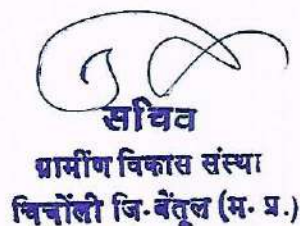 सचिव
ग्रामींण विकास संस्था
चिचोंली जि-बेंतूल (म. प्र.)